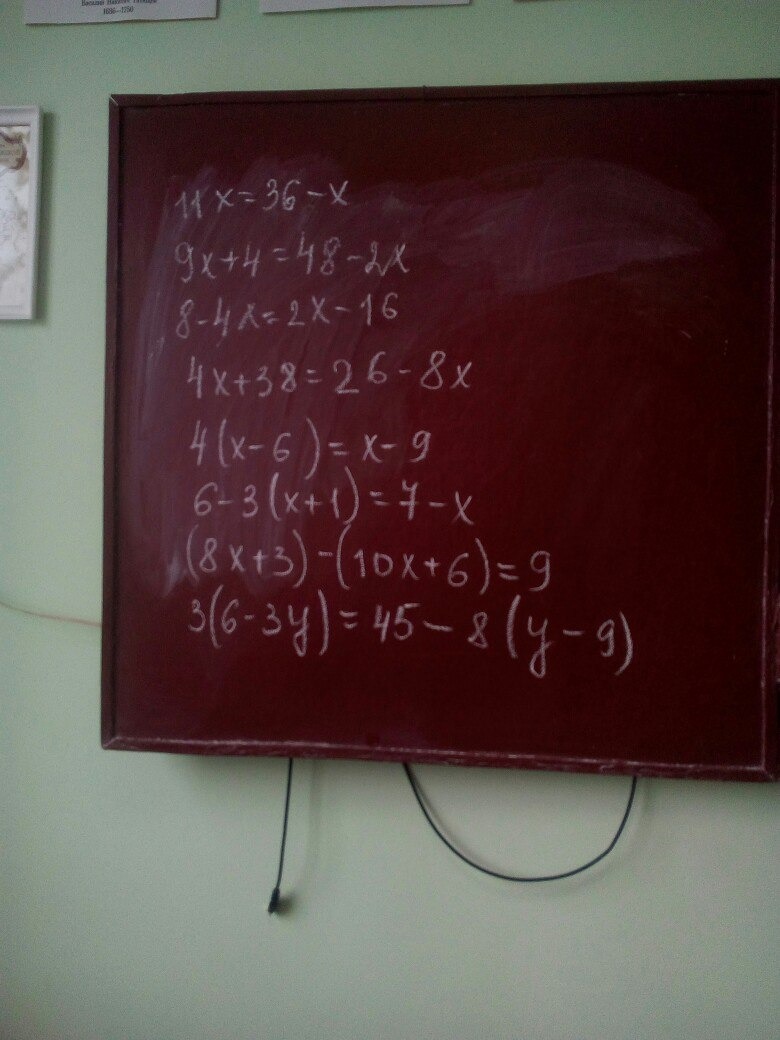 Василий Никитич Татищев
1686–1750
11x=36-x
9x+4=48-2x
8-4x=2x-16
4x+38=26-8x
4(x-6)=x-9
6-3(x+1)=7-x
(8x+3)-(10x+6)=9
3(6-3y)=45-8(y-9)